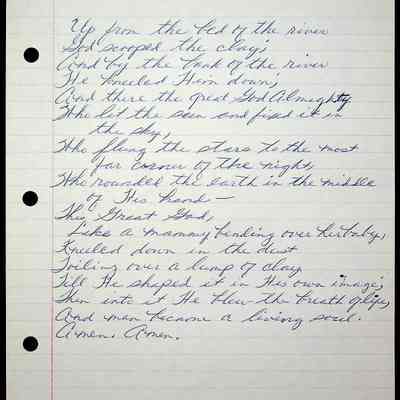 Up from the bed of the river
God scooped the clay;
And by the bank of the river
He kneeled Him down;
And there the great God Almighty
Who lit the sun and fixed it in
the sky,
Who flung the stars to the most
far corner of the night,
Who rounded the earth in the middle
of His hand—
This Great God,
Like a mammy bending over her baby,
Kneeled down in the dust
Toiling over a lump of clay
Till He shaped it in His own image;
Then into it He blew the breath of life,
And man became a living soul.
Amen. Amen.